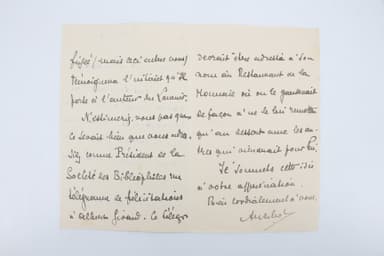 figé (mais ceci entre nous)
témoignera l'intérêt qu'Il
porte à l'auteur du
N'estimez-vous pas que
ce serait bien que vous
comme Président de la
Société des Bibliophiles un
télégramme de félicitations
à Albert Giraud. Ce télégr
devrait être adressé à son
nom au Restaurant de la
Monnaie où on le garderait
de façon à ne le lui remettre
qu'au dessert avec les au-
tres qui arriveront pour lui.
Je soumets cette idée
à votre appréciation.
Bien cordialement à vous.